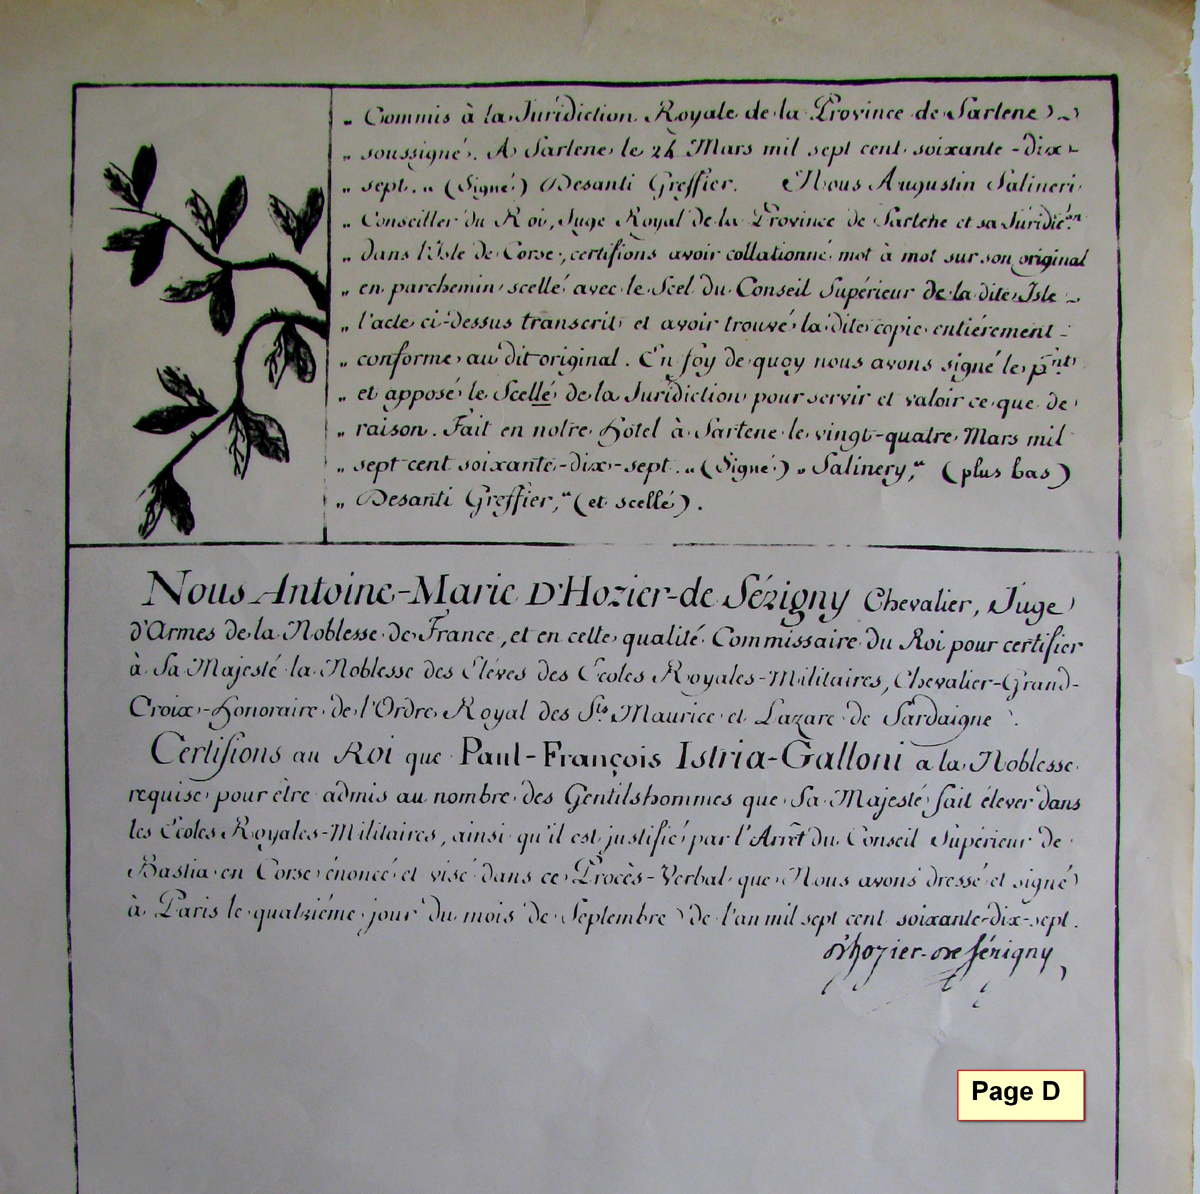 „ Commis à la Juridiction Royale de la Province de Sartene
„ soussigné. A Sartene le 24 Mars mil sept cent soixante-dix-
„ sept." (Signé) Desanti Greffier. Nous Augustin Salineri
„ Conseiller du Roi, Juge Royal de la Province de Sartene et sa Juridic.on
„ dans l'Isle de Corse, certifions avoir collationné mot à mot sur son original
„ en parchemin scellé avec le Scel du Conseil Supérieur de la dite Isle
„ l'acte ci-dessus transcrit et avoir trouvé la dite copie entiérement
„ conforme au dit original. En foy de quoy nous avons signé le p̃nt
„ et apposé le Scellé de la Juridiction pour servir et valoir ce que de
„ raison. Fait en notre Hôtel à Sartene le vingt-quatre Mars mil
„ sept cent soixante-dix-sept." (Signé) „ Salinery," (plus bas)
„ Desanti Greffier," (et scellé).
Nous Antoine-Marie D'Hozier-de Sérigny Chevalier, Juge
d'Armes de la Noblesse de France, et en cette qualité Commissaire du Roi pour certifier
à Sa Majesté la Noblesse des Eléves des Ecoles Royales-Militaires, Chevalier-Grand-
Croix-Honoraire de l'Ordre Royal des Sts Maurice et Lazare de Sardaigne.
Certifions au Roi que Paul-François Istria-Galloni a la Noblesse
requise pour être admis au nombre des Gentilshommes que Sa Majesté fait élever dans
les Ecoles Royales-Militaires, ainsi qu'il est justifié par l'Arrêt du Conseil Supérieur de
Bastia en Corse énoncé et visé dans ce Procès-Verbal que Nous avons dressé et signé
à Paris le quatriéme jour du mois de Septembre de l'an mil sept cent soixante-dix-sept.
d'hozier-de Sérigny
Page D